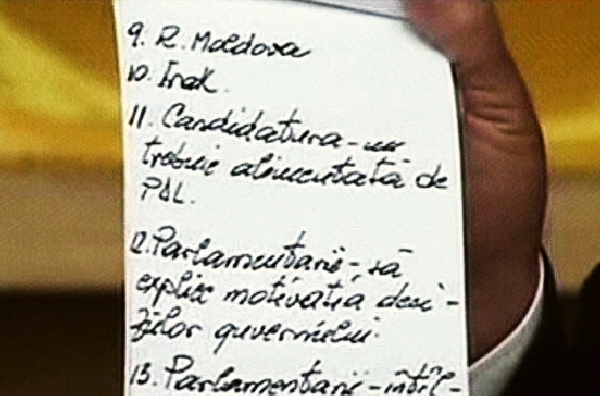 9. R. Moldova
10. Irak.
11. Candidatura - nu
trebuie alimentată de
PDL.
12. Parlamentarii - să
explice motivația deci-
ziilor guvernului.
13. Parlamentarii - întîl-